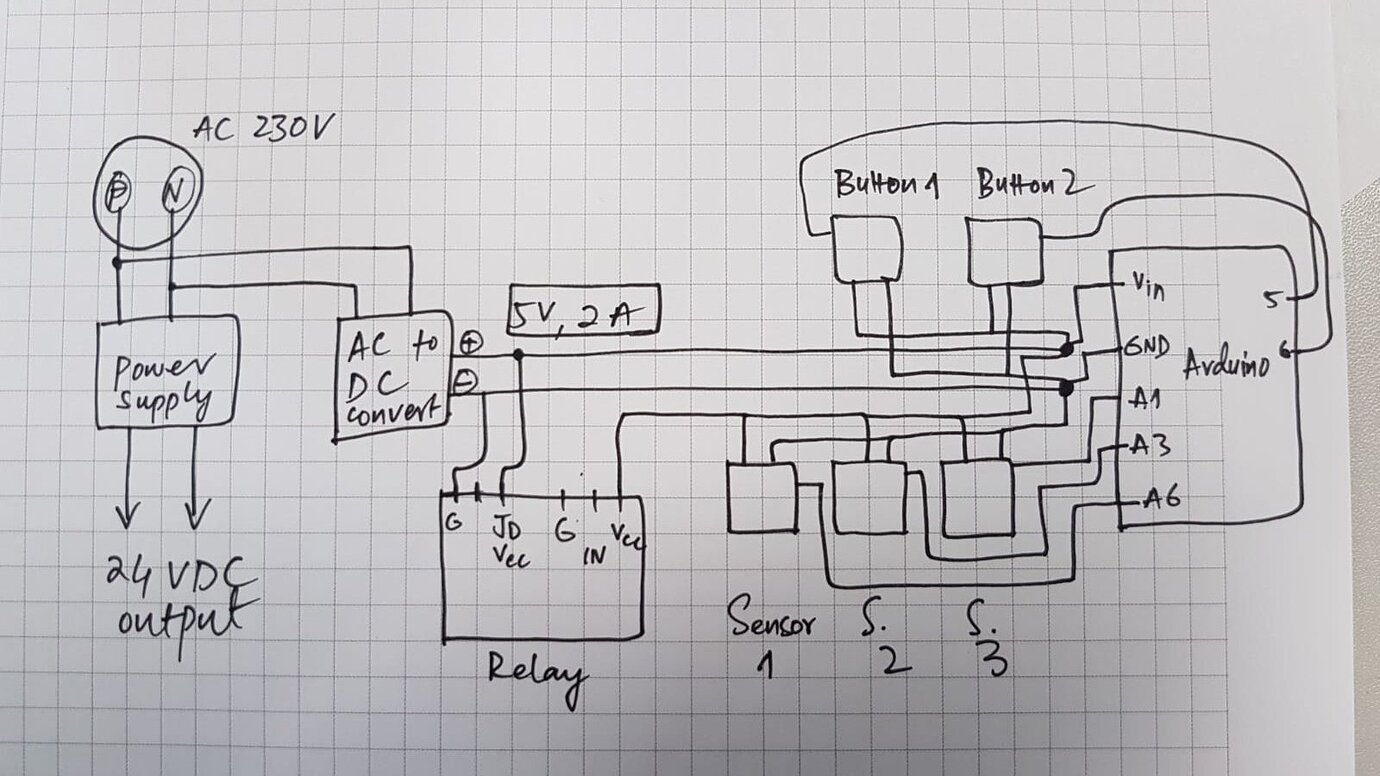 AC 230V
P N
Button 1 Button 2
Vin
5
5V, 2A
AC to
DC
convert
+
-
Power
Supply
GND
Arduino
6
A1
A3
A6
G
JD
Vcc
G
IN
Vcc
24 VDC
output
Relay
Sensor
1
S.
2
S.
3